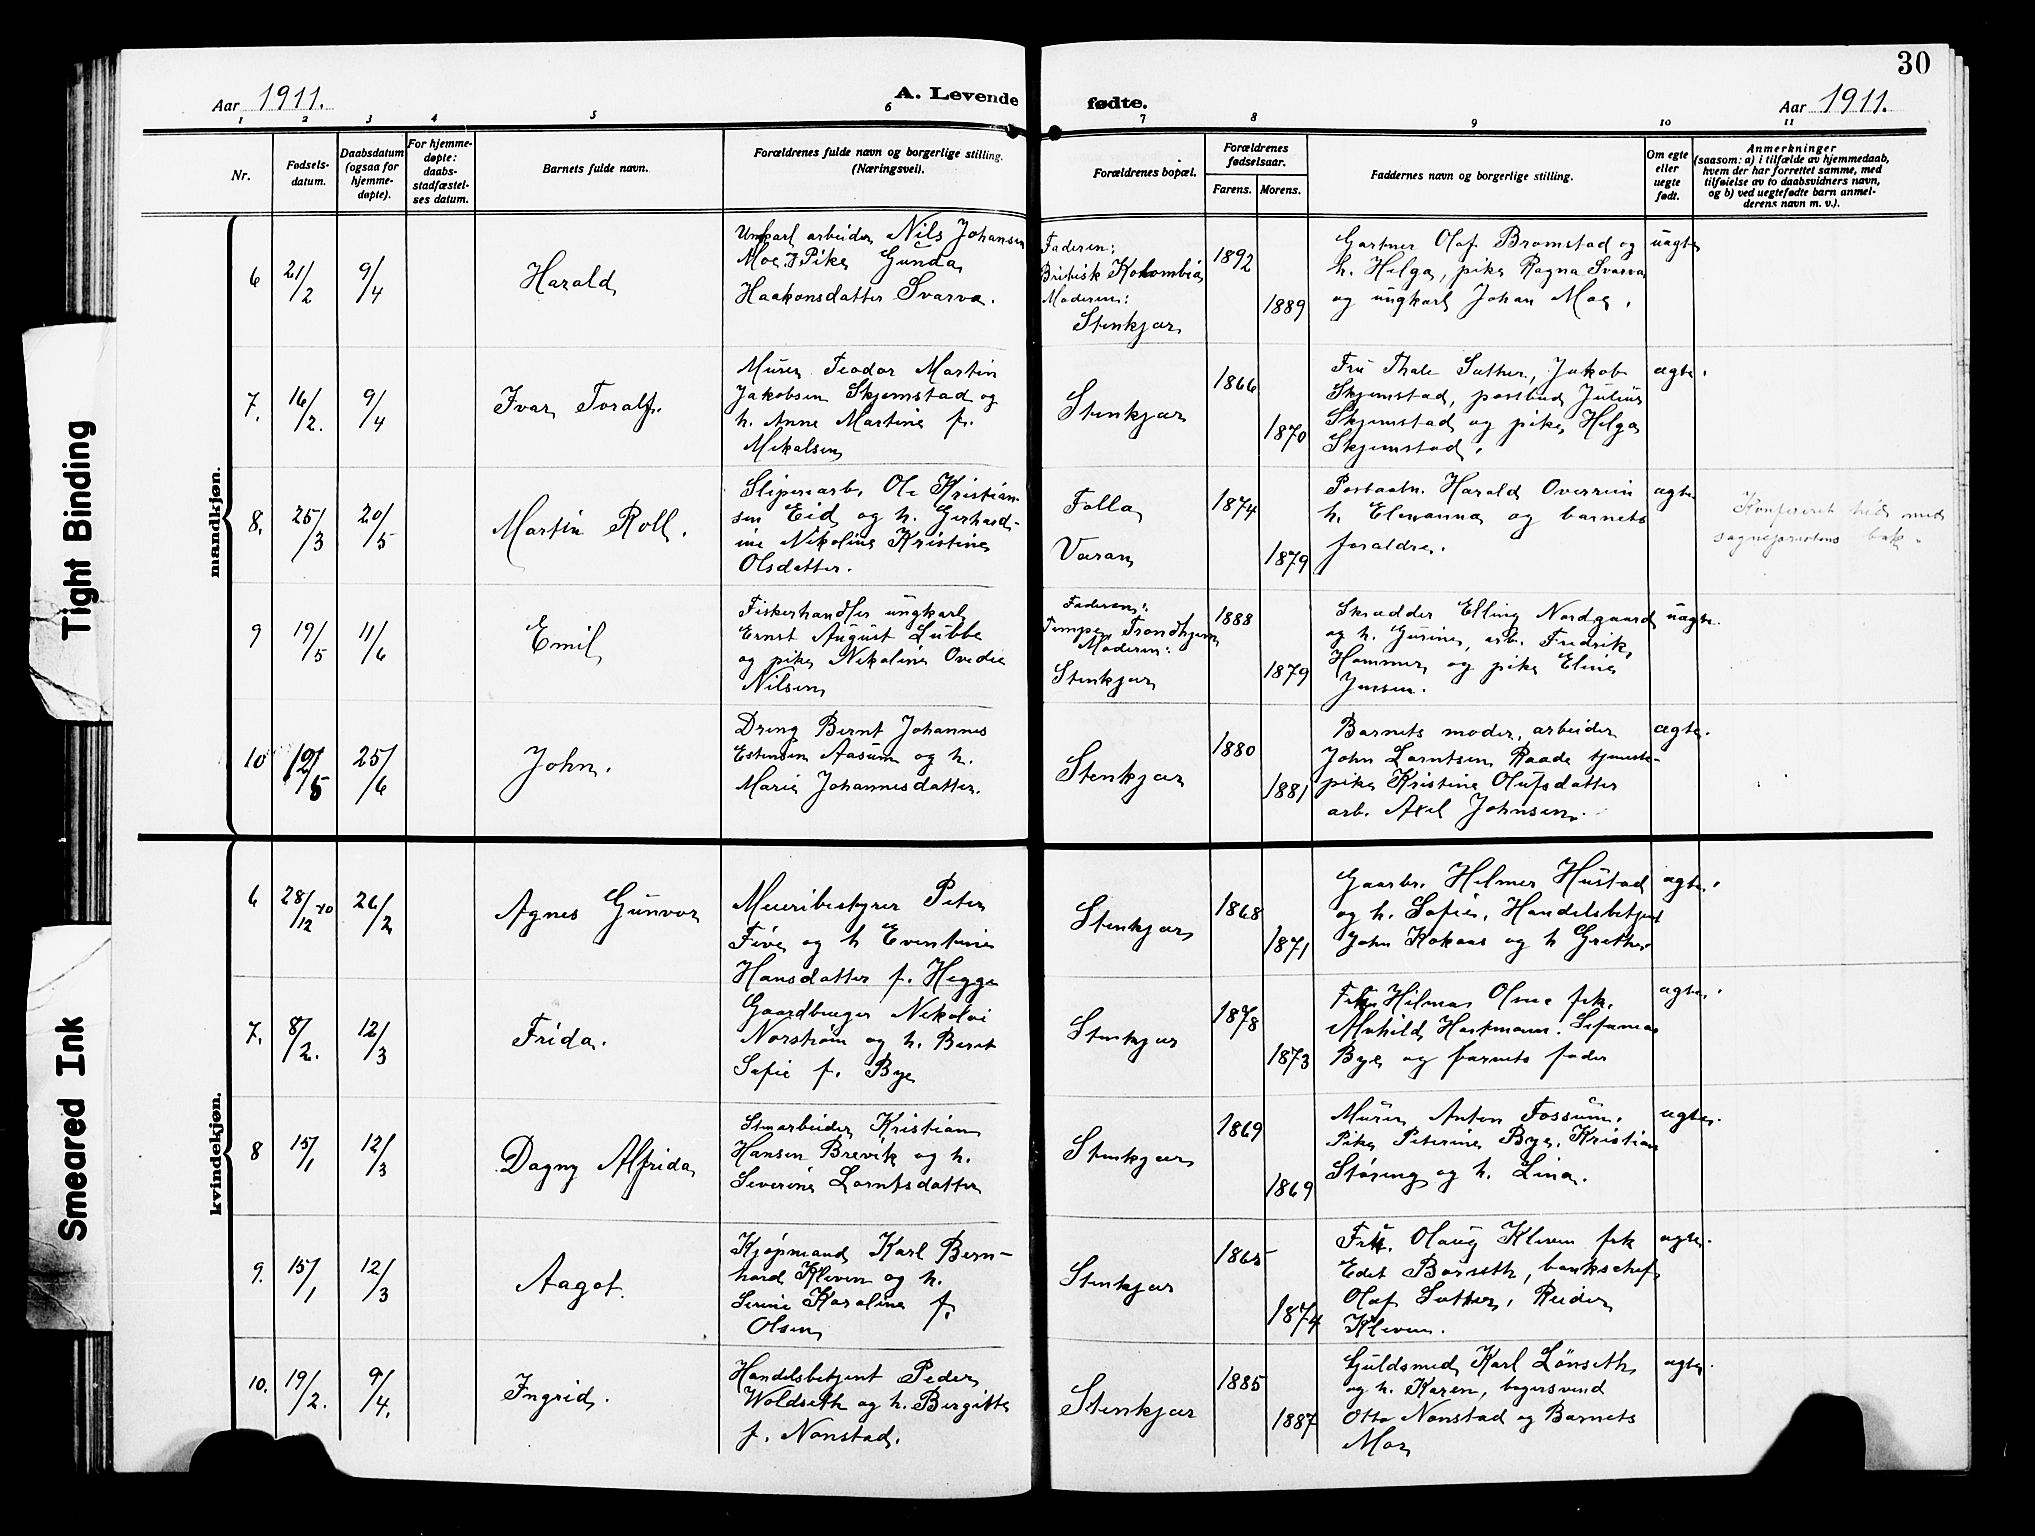 30
Aar 1911.
A. Levende fødte.
Aar 1911.
1 2 3 4 5 6 7 8 9 10 11
Nr.
Fødsels-
datum.
Daabsdatum
(ogsaa for
hjemme-
døpte).
For hjemme-
døpte:
daabs-
stadfæstel-
ses datum.
Barnets fulde navn.
Forældrenes fulde navn og borgerlige stilling.
(Næringsvei).
Forældrenes bopæl.
Forældrenes
fødselsaar.
Farens. Morens.
Faddernes navn og borgerlige stilling.
Om egte
eller
uegte
født.
Anmerkninger
(saasom: a) i tilfælde av hjemmedaab,
hvem der har forrettet samme, med
tilføielse av to daabsvidners navn,
og b) ved uegtefødte barn anmel-
derens navn m. v.).
mandkjøn.
6
21/2
9/4
Harald
Ungkarl arbeider Nils Johansen
Moe. Pike Gunda
Haakonsdatter Svarva.
Faderen:
Britisk Kolombia
Moderen:
Stenkjær
1892
1889
Gartner Olaf Bromstad og
h. Helga, pike Ragna Svarva
og ungkarl Johan Moe.
uægte
7.
16/2.
9/4
Ivar Toralf.
Murer Teodor Martin
Jakobsen Skjemstad og
h. Anne Martine f.
Mikalsen
Stenkjær
1866
1870
Fru Thale Sæther, Jakob
Skjemstad, postbud Julius
Skjemstad og pike Helga
Skjemstad.
ægte.
8.
25/3
20/5
Martin Roll.
Sliperiarb. Ole Kristian-
sen Eid og h. Gerhard-
ine Nikoline Kristine
Olsdatter.
Folla
Væran
1874
1879
Postaatn. Harald Overrein
h. Elenanna og barnets
forældre.
ægte
Konfireret hid med
sogneprestens bok.
9
19/5
11/6
Emil
Fiskerhandler ungkarl
Ernst August Lubbe
og pike Nikoline Ovedie
Nilsen
Faderen:
Tempe, Trondhjem
Moderen:
Stenkjær
1888
1879
Skrædder Elling Nordgaard
og h. Gurine, arb. Fredrik
Hammer og pike Eline
Jensen.
uægte.
10
12/5
25/6
John.
Dreng Bernt Johannes
Estensen Aasum og h.
Marie Johannesdatter.
Stenkjær
1880
1881
Barnets moder, arbeider
John Lorntsen Raade tjeneste-
pike Kristine Olufsdatter
arb. Axel Johnsen.
ægte.
kvindekjøn.
6
28/12 10
26/2
Agnes Gunvor
Meieribestyrer Peter
Five og h Eventine
Hansdatter f. Hegge
Stenkjær
1868
1871
Gaarbr. Helmer Hustad
og h. Sofie, Handelsbetjent
John Kokaas og h Grethe.
ægte.
7.
8/2.
12/3
Frida.
Gaardbruger Nikolai
Norstrøm og h. Berit
Sofie f. Bye
Stenkjær
1878
1873
Hilma Olsne frk.
Hartmann.
Bye og barnets fader
ægte.
8
15/1
12/3
Dagny Alfrida
Stenarbeider Kristian
Hansen Brevik og h.
Severine Lorntsdatter
Stenkjær
1869
1869
Murer Anton Fossum.
Pike Peterine Bye. Kristian
Støring og h. Lina.
ægte.
9.
15/1
12/3
Aagot.
Kjøpmand Karl Bern-
hard Kleven og h.
Serine Karoline f.
Olsen
Stenkjær
1865
1874
Fru. Olaug Kleven frk
Edet Barseth, bankchef
Olaf Sæther, Reidar
Kleven.
ægte.
10.
19/2.
9/4.
Ingrid.
Handelsbetjent Peder
Woldseth og h. Bergitte
f. Nonstad.
Stenkjær
1885
1887
Guldsmed Karl Lønseth
og h. Karen, bagersvend
Otto Nonstad og Barnets
Mor
ægte.
Tight Binding
Smeared Ink